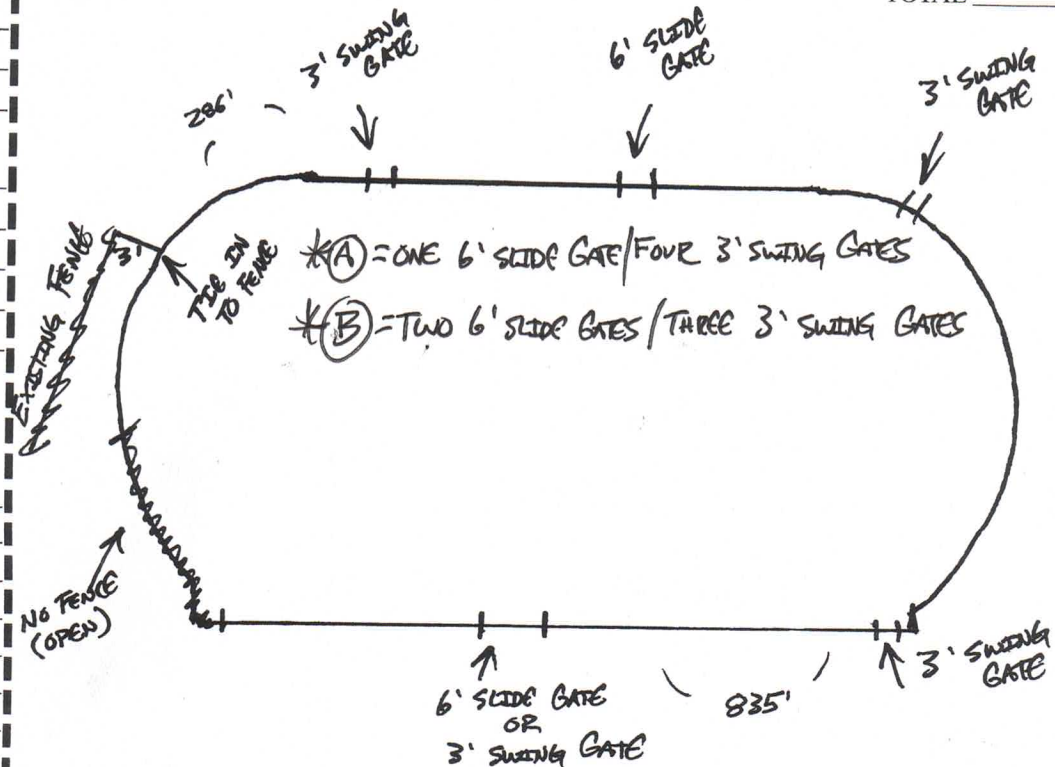 TOTAL
3' SWING
GATE
6' SLIDE
GATE
3' SWING
GATE
286'
EXISTING FENCE
3'
TIE IN
TO FENCE
*Ⓐ=ONE 6' SLIDE GATE/FOUR 3' SWING GATES
*Ⓑ=TWO 6' SLIDE GATES/THREE 3' SWING GATES
NO FENCE
(OPEN)
6' SLIDE GATE
OR
3' SWING GATE
835'
3' SWING
GATE